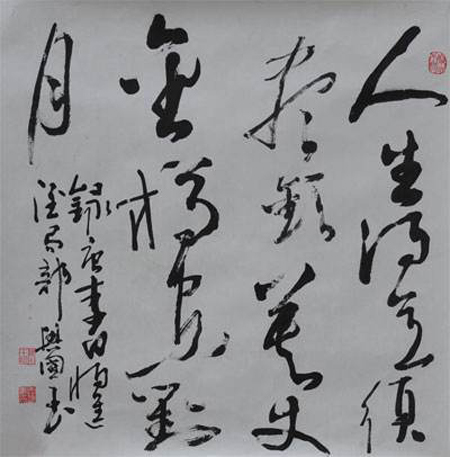 人生得意須
盡歡莫使
金樽空對
月
錄唐李白將進
酒句 興國書